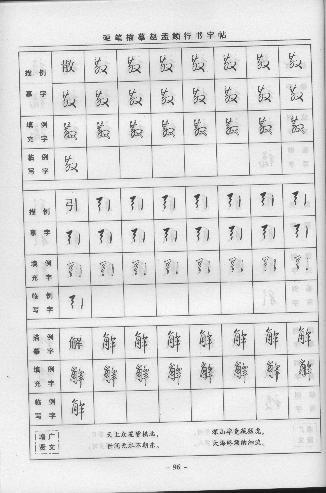 硬笔描摹赵孟頫行书字帖
描 例 散 散 散 散 散 散 散 散
摹 字 散 散 散 散 散 散 散 散
填 例 散 散 散 散 散 散 散 散
充 字
临 例 散
写 字
描 例 引 引 引 引 引 引 引 引
摹 字 引 引 引 引 引 引 引 引
填 例 引 引 引 引 引 引 引 引
充 字
临 例 引
写 字
描 例 解 解 解 解 解 解 解 解
摹 字
填 例 解 解 解 解 解 解 解 解
充 字
临 例 解
写 字
增 广
贤 文
天上众星皆拱北，
世间无水不朝东。
- 96 -